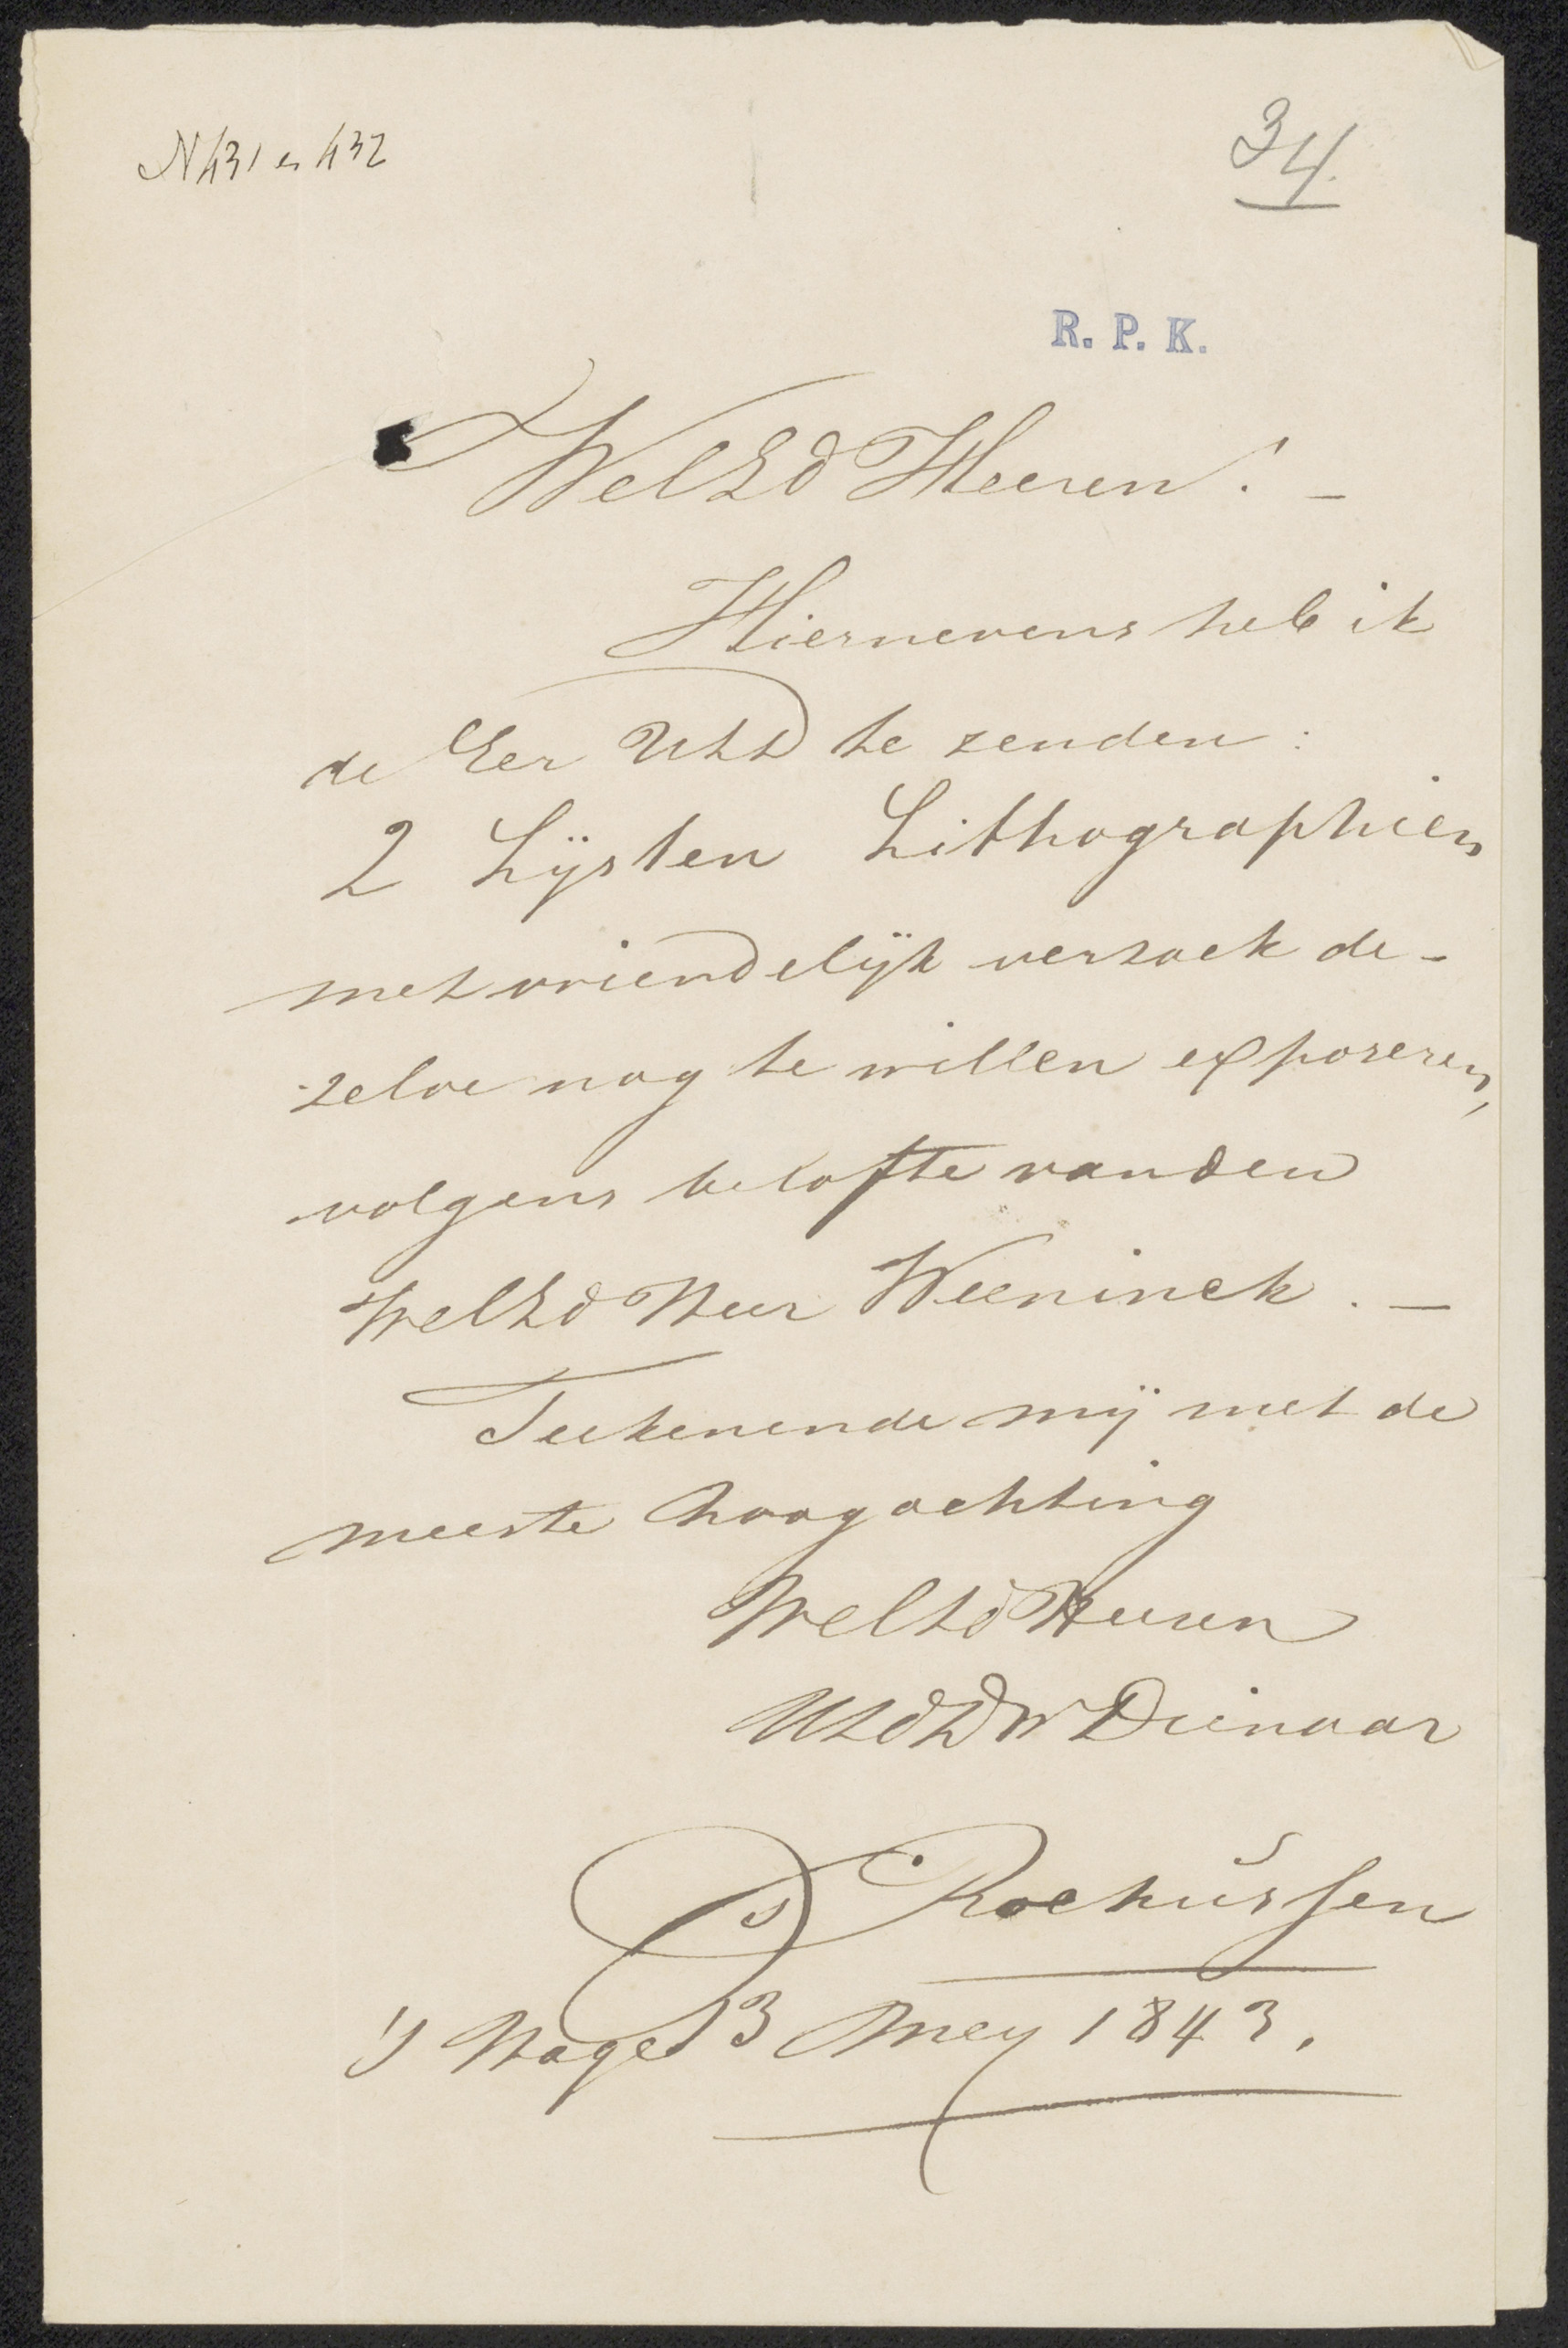 N 431 en 432
34.
R. P. K.
WelEd Heeren! -
Hiernevens heb ik
de Eer UEd te zenden:
2 Lÿsten Lithographien
met vriendelÿk verzoek de-
zelve nog te willen exposeren,
volgens belofte vanden
WelEd Heer Weeninck. -
Teekenende mÿ met de
meeste hoogachting
WelEd Heeren
UEd Dw Dienaar
Rochussen
's Hage 3 Mey 1843.